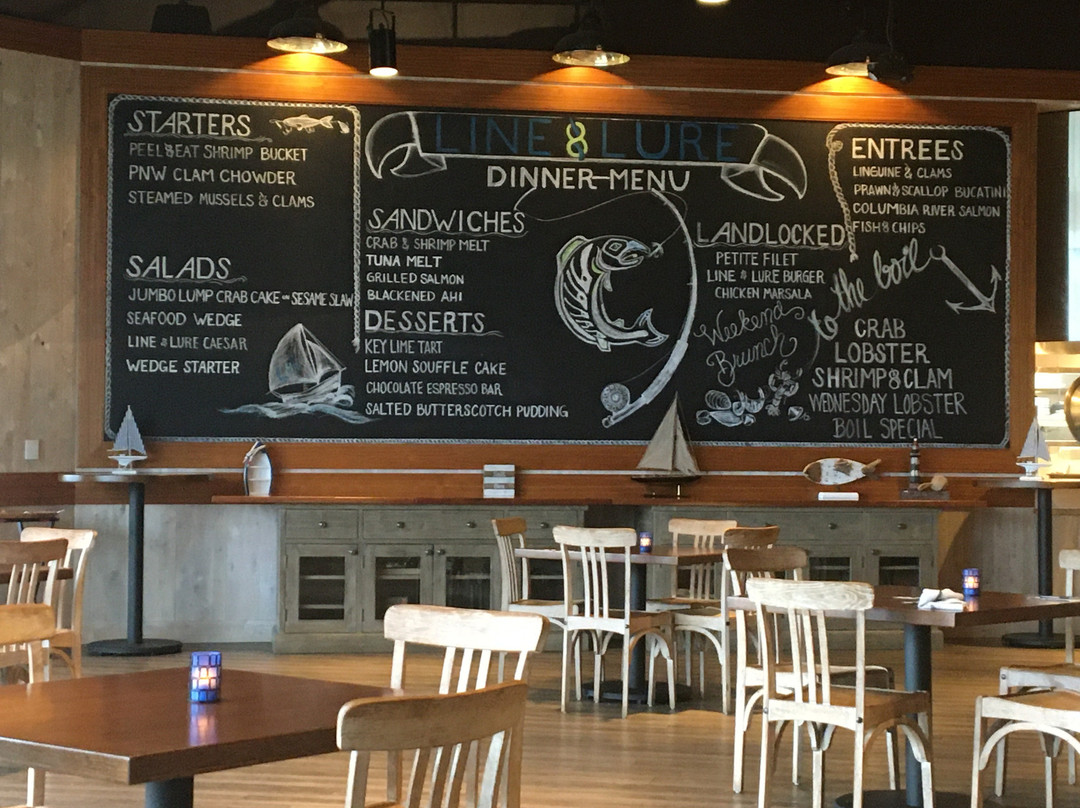 LINE & LURE
DINNER MENU
STARTERS
PEEL & EAT SHRIMP BUCKET
PNW CLAM CHOWDER
STEAMED MUSSELS & CLAMS
SALADS
JUMBO LUMP CRAB CAKE ON SESAME SLAW
SEAFOOD WEDGE
LINE & LURE CAESAR
WEDGE STARTER
SANDWICHES
CRAB & SHRIMP MELT
TUNA MELT
GRILLED SALMON
BLACKENED AHI
DESSERTS
KEY LIME TART
LEMON SOUFFLE CAKE
CHOCOLATE ESPRESSO BAR
SALTED BUTTERSCOTCH PUDDING
LANDLOCKED
PETITE FILET
LINE & LURE BURGER
CHICKEN MARSALA
Weekend
Brunch
ENTREES
LINGUINE & CLAMS
PRAWN & SCALLOP BUCATINI
COLUMBIA RIVER SALMON
FISH & CHIPS
to the boil
CRAB
LOBSTER
SHRIMP & CLAM
WEDNESDAY LOBSTER
BOIL SPECIAL